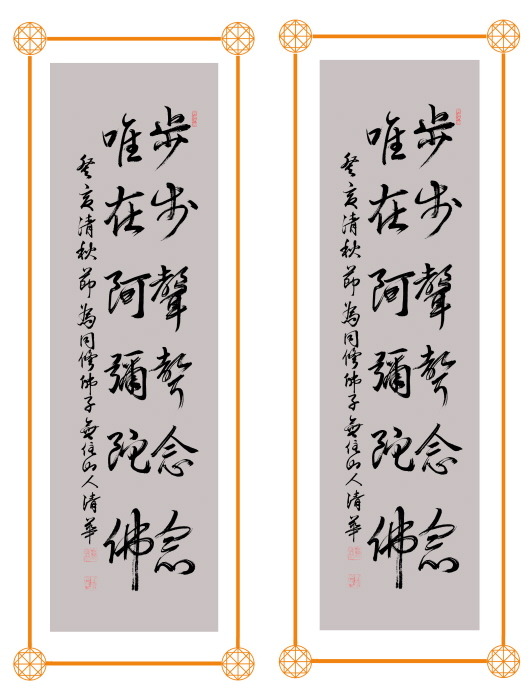 步步聲聲念念
唯在阿彌陀佛
癸亥清秋節為同修佛子無住山人清華
步步聲聲念念
唯在阿彌陀佛
癸亥清秋節為同修佛子無住山人清華